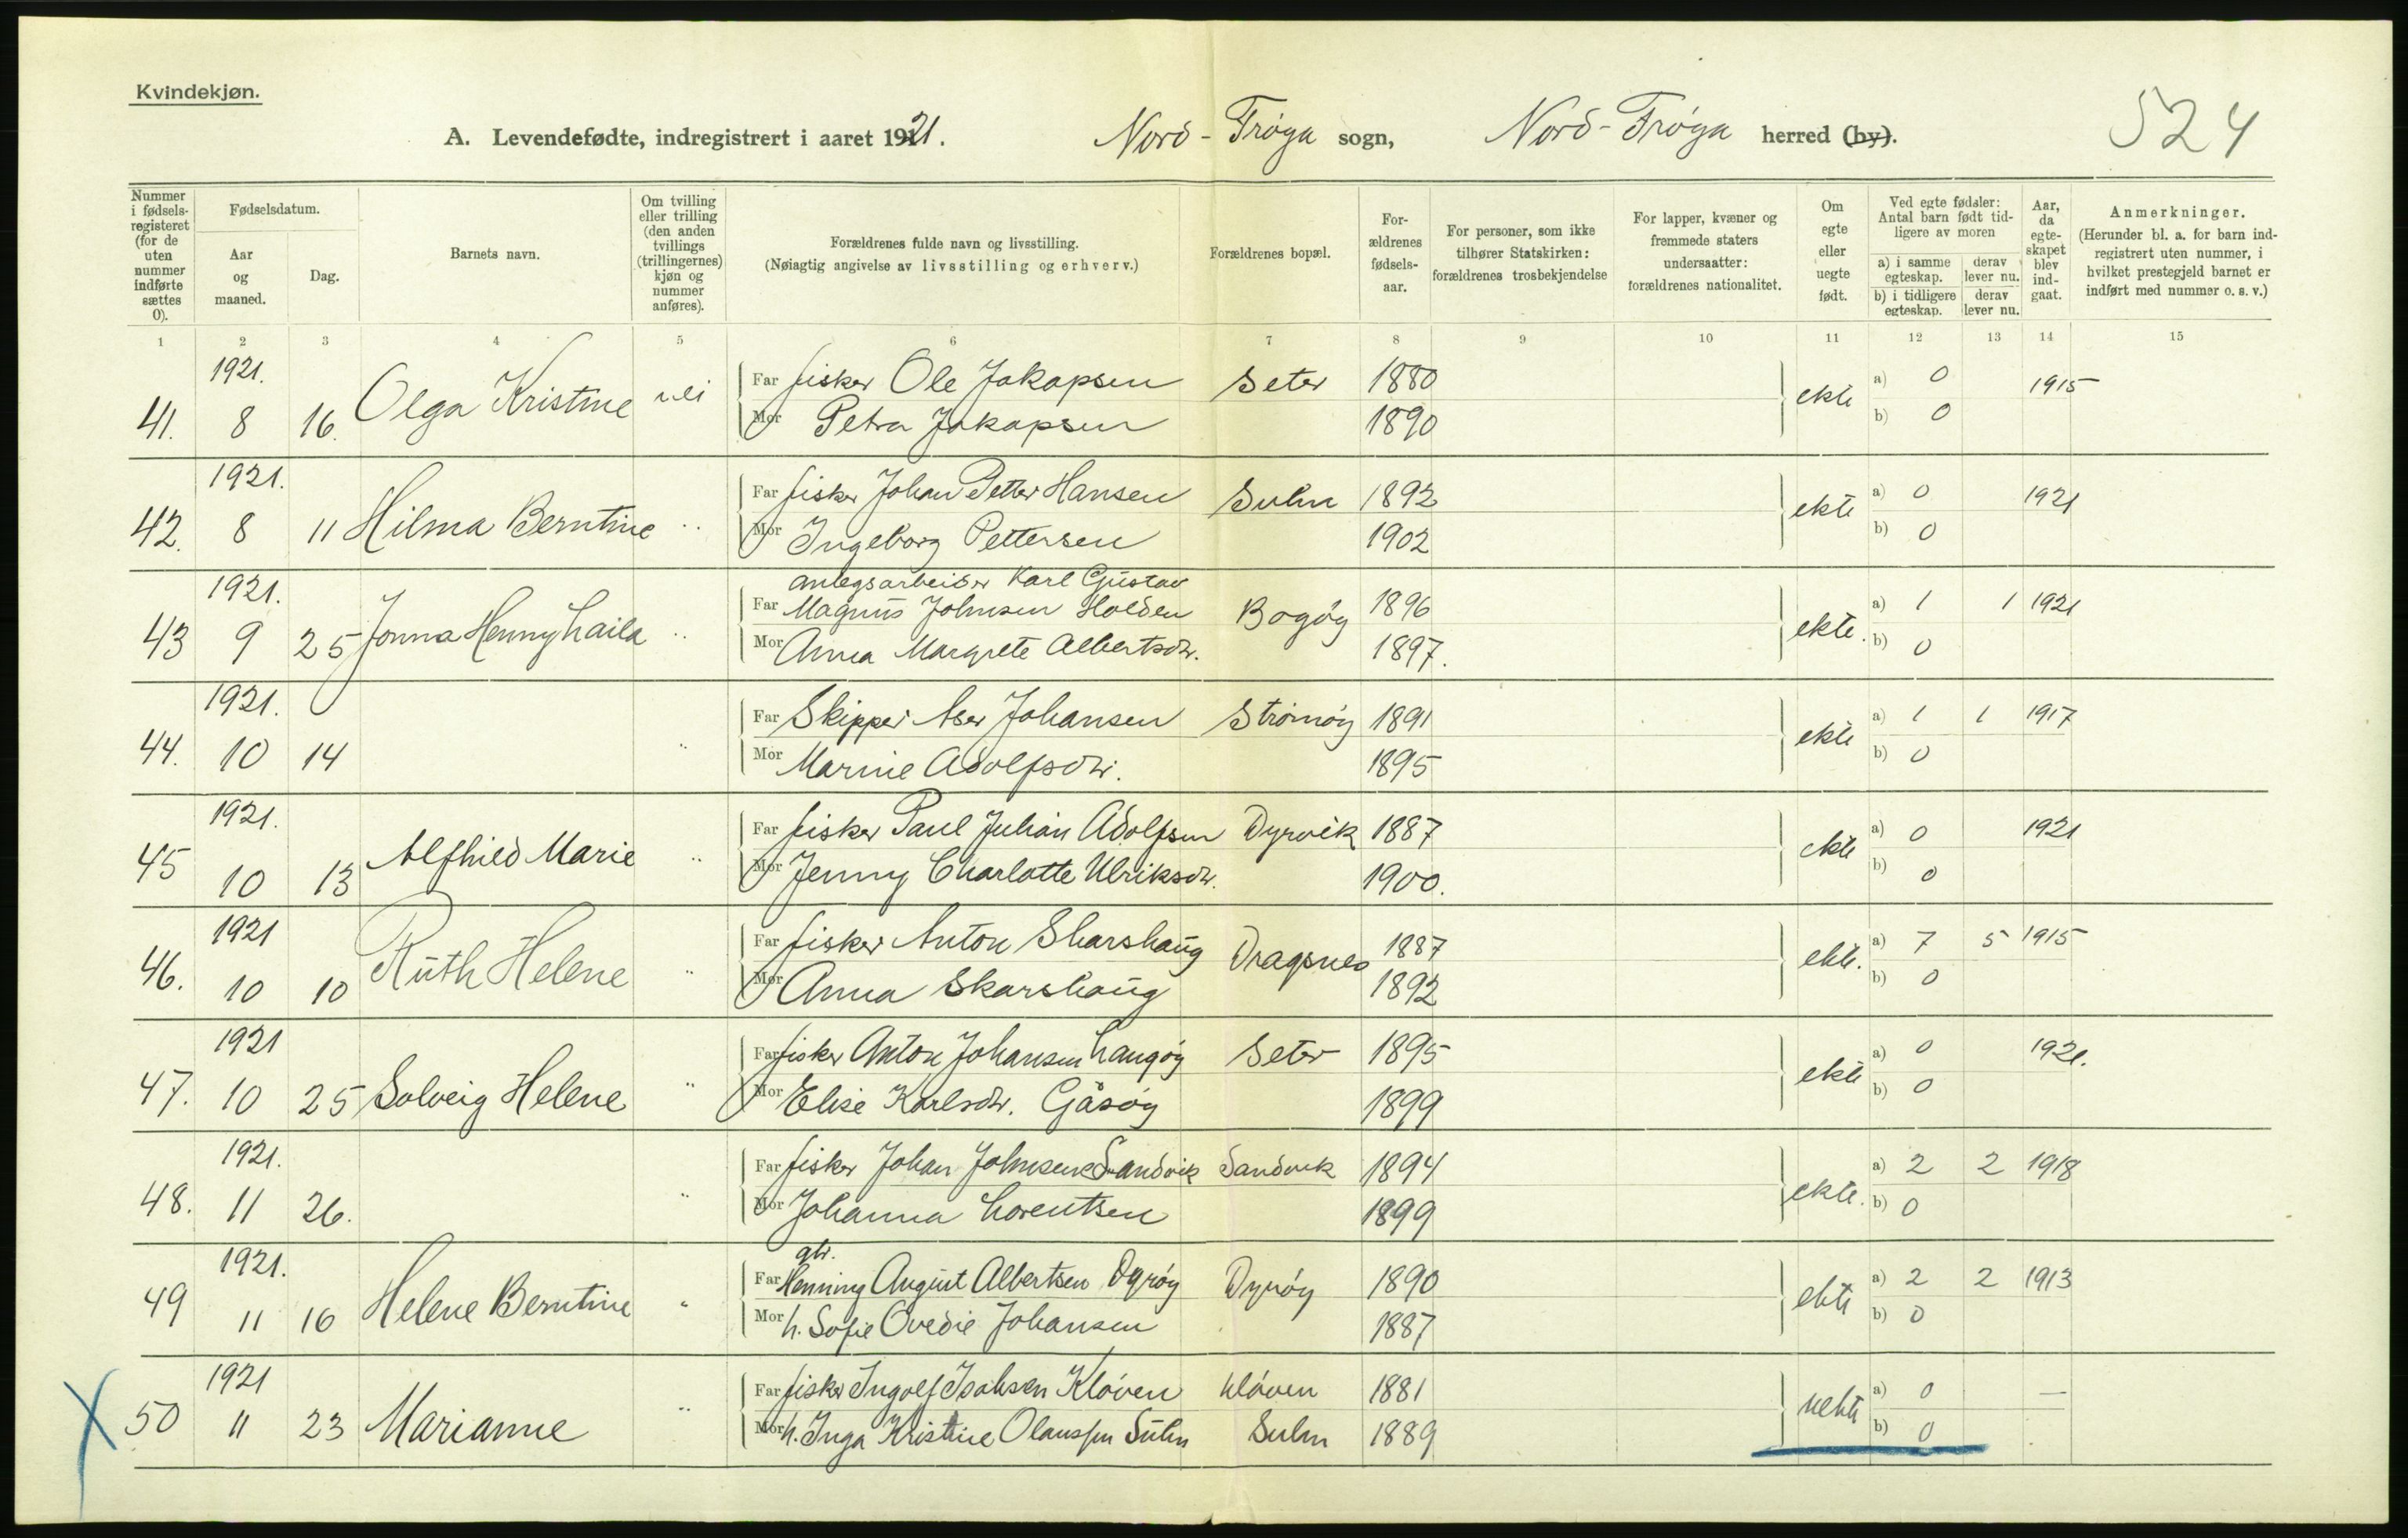 Kvindekjøn.
A. Levendefødte, indregistrert i aaret 1921. Nord-Frøya sogn, Nord-Frøya herred (by). 524
Nummer i fødselsregisteret (for de uten nummer indførte sættes 0). Fødselsdatum. Aar og maaned. Dag. Barnets navn. Om tvilling eller trilling (den anden tvillings (trillingernes) kjøn og nummer anføres). Forældrenes fulde navn og livsstilling. (Nøiagtig angivelse av livsstilling og erhverv.) Forældrenes bopæl. Forældrenes fødselsaar. For personer, som ikke tilhører Statskirken: forældrenes trosbekjendelse For lapper, kvæner og fremmede staters undersaatter: forældrenes nationalitet. Om egte eller uegte født. Ved egte fødsler: Antal barn født tidligere av moren a) i samme egteskap. derav lever nu. b) i tidligere egteskap. derav lever nu. Aar, da egteskapet blev indgaat. Anmerkninger. (Herunder bl. a. for barn indregistrert uten nummer, i hvilket prestegjeld barnet er indført med nummer o. s. v.)
1 2 3 4 5 6 7 8 9 10 11 12 13 14 15
1921. Far fisker Ole Jakopsen Seter 1880 a) 0 1915
41. 8 16. Olga Kristine nei Mor Petra Jakopsen 1890 ekte b) 0
1921. Far fisker Johan Petter Hansen Suln 1892 a) 0 1921
42. 8 11 Hilma Berntine " Mor Ingeborg Pettersen 1902 ekte b) 0
1921. anlegsarbeider Karl Gustav
Far Magnus Johnsen Holden Bogøy 1896 a) 1 1 1921
43 9 25 Jonna Henny Laila " Mor Anna Margrete Albertsdtr. 1897. ekte. b) 0
1921. Far Skipper Aser Johansen Strømøy 1891 a) 1 1 1917
44. 10 14 " Mor Marine Adolfsdtr. 1895 ekte b) 0
1921. Far fisker Paul Julian Adolfsen Dyrvik 1887 a) 0 1921
45 10 13 Alfhild Marie " Mor Jenny Charlotte Ulriksdtr. 1900. ekte b) 0
1921 Far fisker Anton Skarshaug Dragsnes 1887 a) 7 5 1915
46. 10 10 Ruth Helene " Mor Anna Skarshaug 1892 ekte. b) 0
1921 Far fisker Anton Johansen Langøy Seter 1895 a) 0 1921.
47. 10 25 Solveig Helene " Mor Elise Karlsdtr. Gåsøy 1899 ekte b) 0
1921. Far fisker Johan Johnsen Sandvik Sandvik 1894 a) 2 2 1918
48. 11 26. " Mor Johanna Lorentsen 1899 ekte. b) 0
1921. gbr.
Far Henning August Albertsen Dyrøy Dyrøy 1890 a) 2 2 1913
49 11 16 Helene Berntine " Mor h. Sofie Ovedie Johansen 1887 ekte b) 0
1921 Far fisker Ingolf Isaksen Kløven Kløven 1881 a) 0 —
50 11 23 Marianne " Mor h. Inga Kristine Olaussen Suln Suln 1889 uekte b) 0